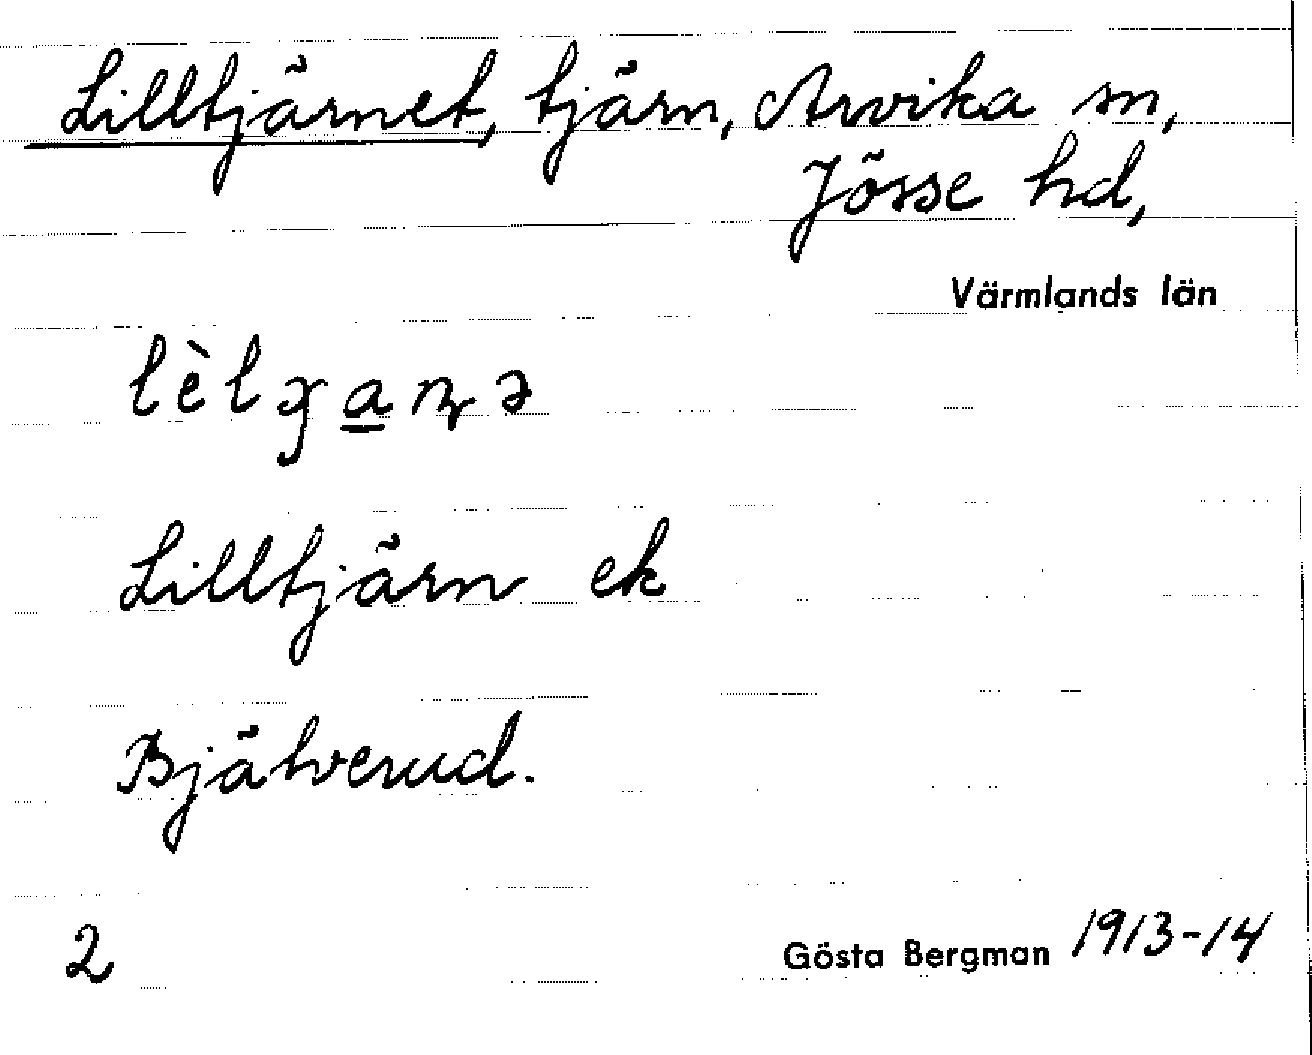 Lilltjärnet, tjärn, Arvika sn,
Jösse hd,
Värmlands län
Lilltjärn ek
Bjälverud.
2
Gösta Bergman 1913-14